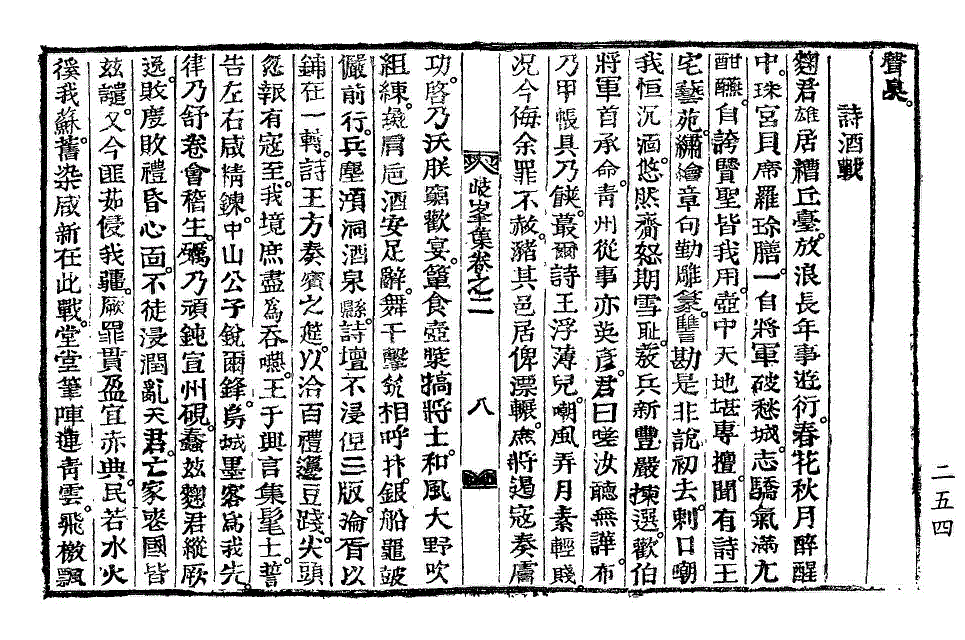 聲臭。
詩酒戰
麴君雄居糟丘臺。放浪長年事遊衍。春花秋月醉醒
中。珠宮貝席羅珍膳。一自將軍破愁城。志驕氣滿尤
酣醼。自誇賢聖皆我用。壺中天地堪專擅。聞有詩王
宅藝苑。繡繪章句勤雕篆。讐勘是非說初去。剌口嘲
我恒沉湎。悠然齋怒期雪耻。發兵新豐嚴揀選。歡伯
將軍首承命。靑州從事亦英彦。君曰嗟汝聽無譁。布
乃甲帳具乃餗。蕞爾詩王浮薄兒。嘲風弄月素輕賤
况今侮余罪不赦。豬其邑居俾漂輾。庶將遏寇奏膚
岐峯集卷之二
八
功。啓乃沃朕窮歡宴。簞食壺漿犒將士。和風大野吹
組練。彘肩巵酒安足辭。舞干擊筑相呼抃。銀船鼉鼓
儼前行。兵塵澒洞酒泉縣。詩壇不浸俓三版。淪胥以
鋪在一轉。詩王方奏賓之筵。以洽百禮籩豆踐。尖頭
忽報有寇至。我境庶盡爲呑嚥。王于興言集髦士。誓
告左右咸精鍊。中山公子銳爾鋒。易城墨客爲我先。
律乃舒卷會稽生。礪乃頑鈍宣州硯。蠢玆麴君縱厥
逸。敗度敗禮昏心面。不徒浸潤亂天君。亡家惑國皆
玆讉。又今匪茹侵我疆。厥罪貫盈宜赤典。民若水火
徯我蘇。舊染咸新在此戰。堂堂筆陣連靑雲。飛檄飄
二五四